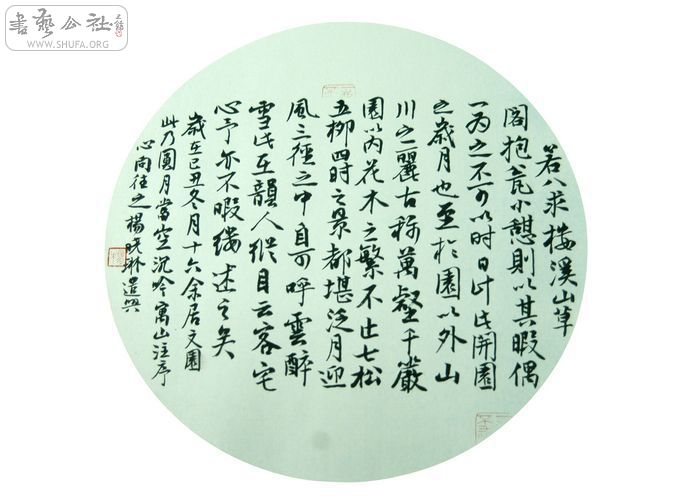 若八求樓溪山草
閣抱瓮小憩則以其暇偶
一為之不可以時日計此開園
之歲月也至於園以外山
川之麗古稱萬壑千巖
園以內花木之繁不止七松
五柳四時之景都堪泛月迎
風三徑之中自可呼雲醉
雪此在韻人縱目云客宅
心予亦不暇縷述之矣
歲在己丑冬月十六余居文園
此乃圓月當空沉吟寓山注序
心向往之楊曉琳遣興
書藝公社
WWW.SHUFA.ORG